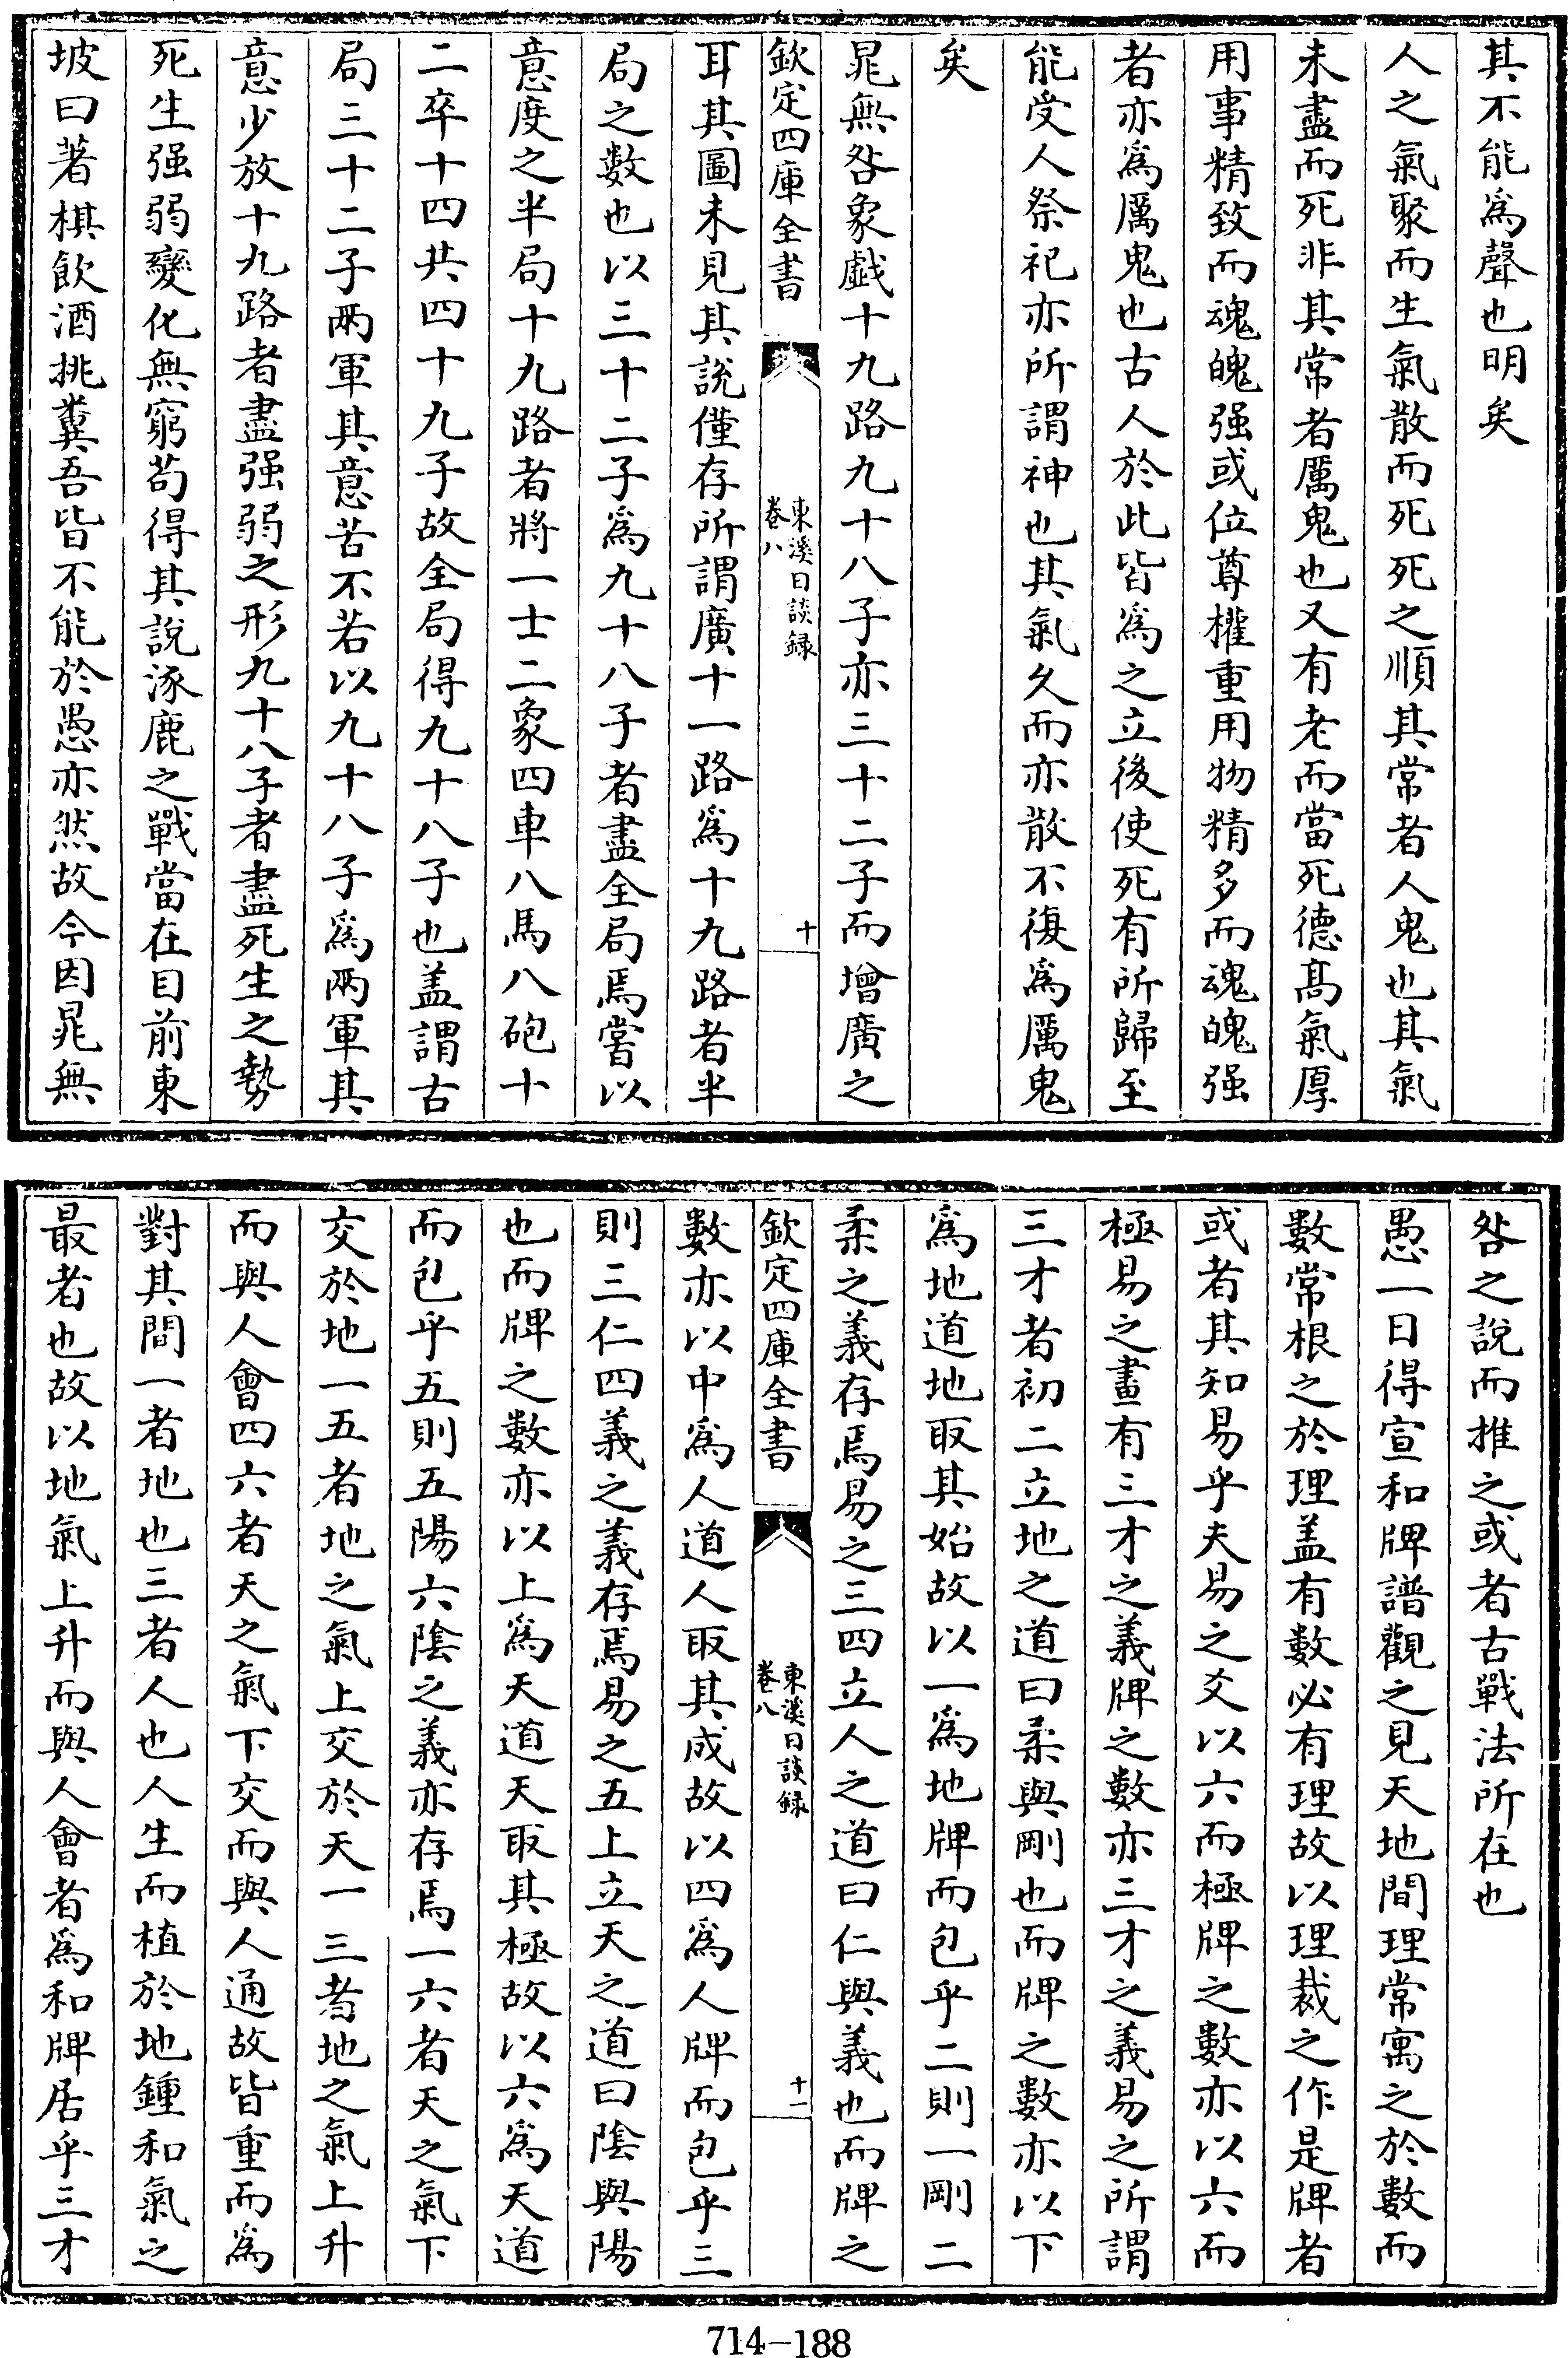 其不能為聲也明矣
人之氣聚而生氣散而死死之順其常者人鬼也其氣
未盡而死非其常者厲鬼也又有老而當死德髙氣厚
用事精致而魂魄强或位尊權重用物精多而魂魄强
者亦為厲鬼也古人於此皆為之立後使死有所歸至
能受人祭祀亦所謂神也其氣久而亦散不復為厲鬼
矣
晁無咎象戯十九路九十八子亦三十二子而增廣之
欽定四庫全書
東溪日談録
卷八
十
耳其圖未見其說僅存所謂廣十一路為十九路者半
局之数也以三十二子為九十八子者盡全局焉嘗以
意度之半局十九路者將一士二象四車八馬八砲十
二卒十四共四十九子故全局得九十八子也盖謂古
局三十二子兩軍其意苦不若以九十八子為兩軍其
意少放十九路者盡强弱之形九十八子者盡死生之勢
死生强弱變化無窮苟得其說涿鹿之戰當在目前東
坡曰著棋飲酒挑糞吾皆不能於愚亦然故今因晁無
咎之說而推之或者古戰法所在也
愚一日得宣和牌譜觀之見天地間理常寓之於數而
數常根之於理盖有數必有理故以理裁之作是牌者
或者其知易乎夫易之爻以六而極牌之數亦以六而
極易之畫有三才之義牌之數亦三才之義易之所謂
三才者初二立地之道曰柔與剛也而牌之數亦以下
為地道地取其始故以一為地牌而包乎二則一剛二
柔之義存焉易之三四立人之道曰仁與義也而牌之
欽定四庫全書
東溪日談録
卷八
十一
數亦以中為人道人取其成故以四為人牌而包乎三
則三仁四義之義存焉易之五上立天之道曰陰與陽
也而牌之數亦以上為天道天取其極故以六為天道
而包乎五則五陽六陰之義亦存焉一六者天之氣下
交於地一五者地之氣上交於天一三者地之氣上升
而與人會四六者天之氣下交而與人通故皆重而為
對其間一者地也三者人也人生而植於地鍾和氣之
最者也故以地氣上升而與人會者為和牌居乎三才
714-188